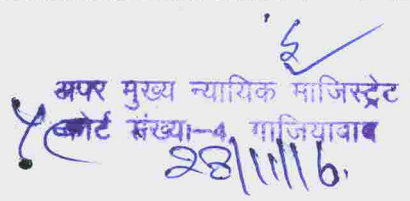 अपर मुख्य न्यायिक माजिस्ट्रेट
कोर्ट संख्या-4, गाजियाबाद
28/11/16.